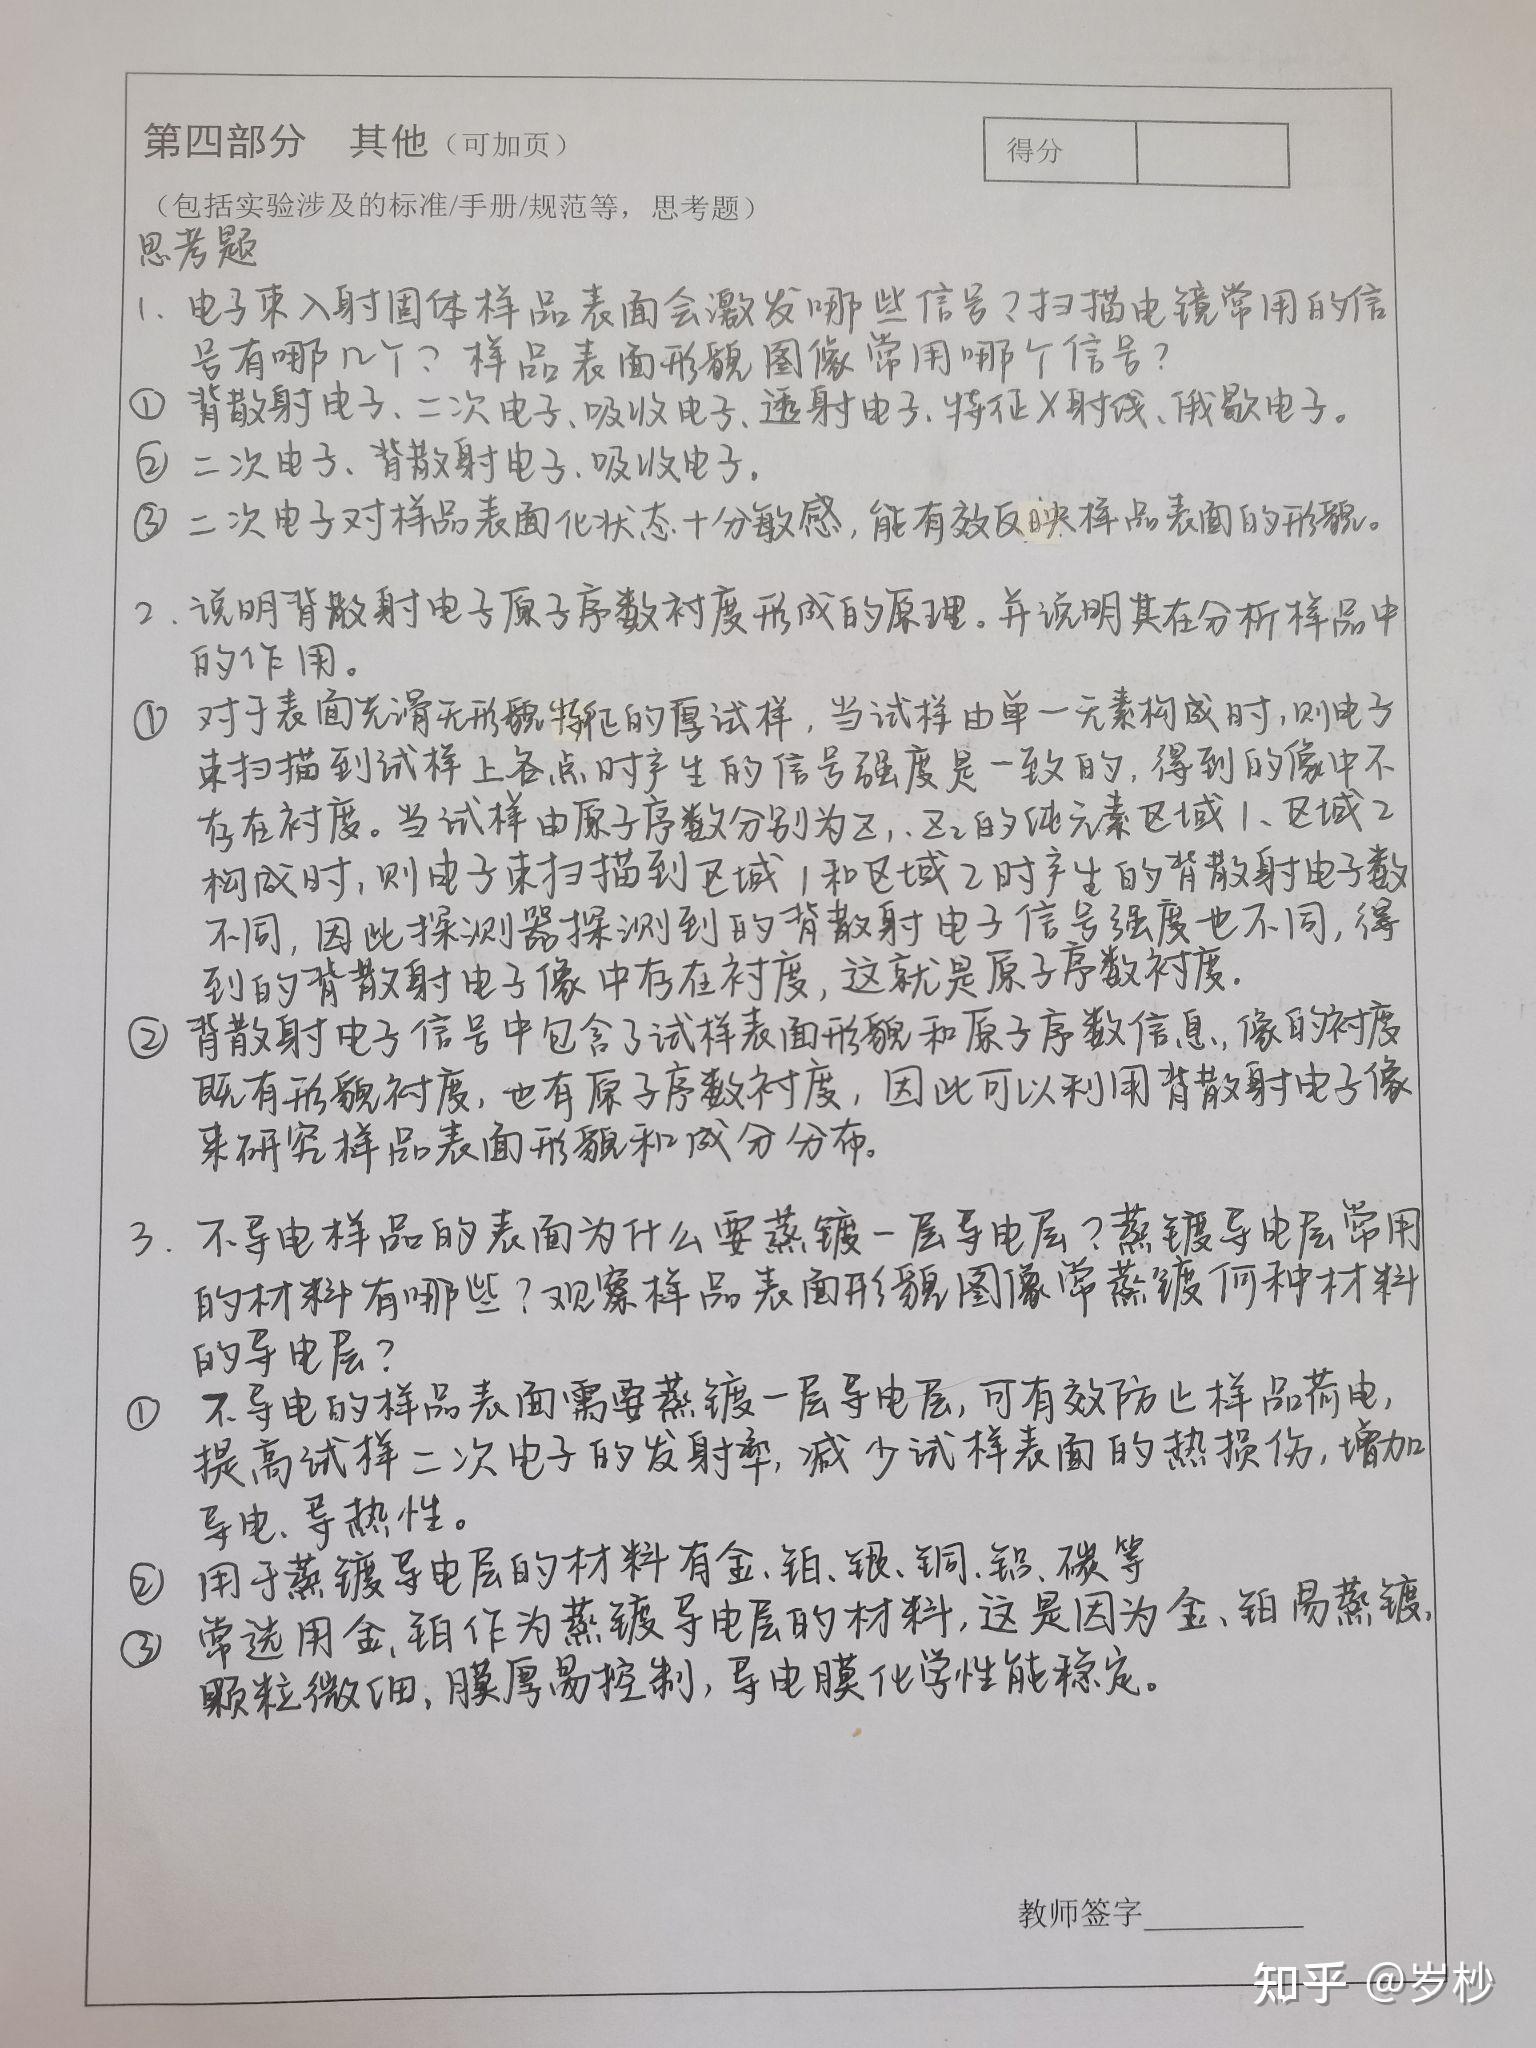 第四部分 其他（可加页）
得分
（包括实验涉及的标准/手册/规范等，思考题）
思考题
1. 电子束入射固体样品表面会激发哪些信号？扫描电镜常用的信
号有哪几个？样品表面形貌图像常用哪个信号？
① 背散射电子、二次电子、吸收电子、透射电子、特征X射线、俄歇电子。
② 二次电子、背散射电子、吸收电子。
③ 二次电子对样品表面化状态十分敏感，能有效反映样品表面的形貌。
2. 说明背散射电子原子序数衬度形成的原理。并说明其在分析样品中
的作用。
① 对于表面光滑无形貌特征的厚试样，当试样由单一元素构成时，则电子
束扫描到试样上各点时产生的信号强度是一致的，得到的像中不
存在衬度。当试样由原子序数分别为Z1、Z2的纯元素区域1、区域2
构成时，则电子束扫描到区域1和区域2时产生的背散射电子数
不同，因此探测器探测到的背散射电子信号强度也不同，得
到的背散射电子像中存在衬度，这就是原子序数衬度.
② 背散射电子信号中包含了试样表面形貌和原子序数信息，像的衬度
既有形貌衬度，也有原子序数衬度，因此可以利用背散射电子像
来研究样品表面形貌和成分分布。
3. 不导电样品的表面为什么要蒸镀一层导电层？蒸镀导电层常用
的材料有哪些？观察样品表面形貌图像常蒸镀何种材料
的导电层？
① 不导电的样品表面需要蒸镀一层导电层，可有效防止样品荷电，
提高试样二次电子的发射率，减少试样表面的热损伤，增加
导电、导热性。
② 用于蒸镀导电层的材料有金、铂、银、铜、铝、碳等
③ 常选用金、铂作为蒸镀导电层的材料，这是因为金、铂易蒸镀，
颗粒微细，膜厚易控制，导电膜化学性能稳定。
教师签字
知乎 @岁杪